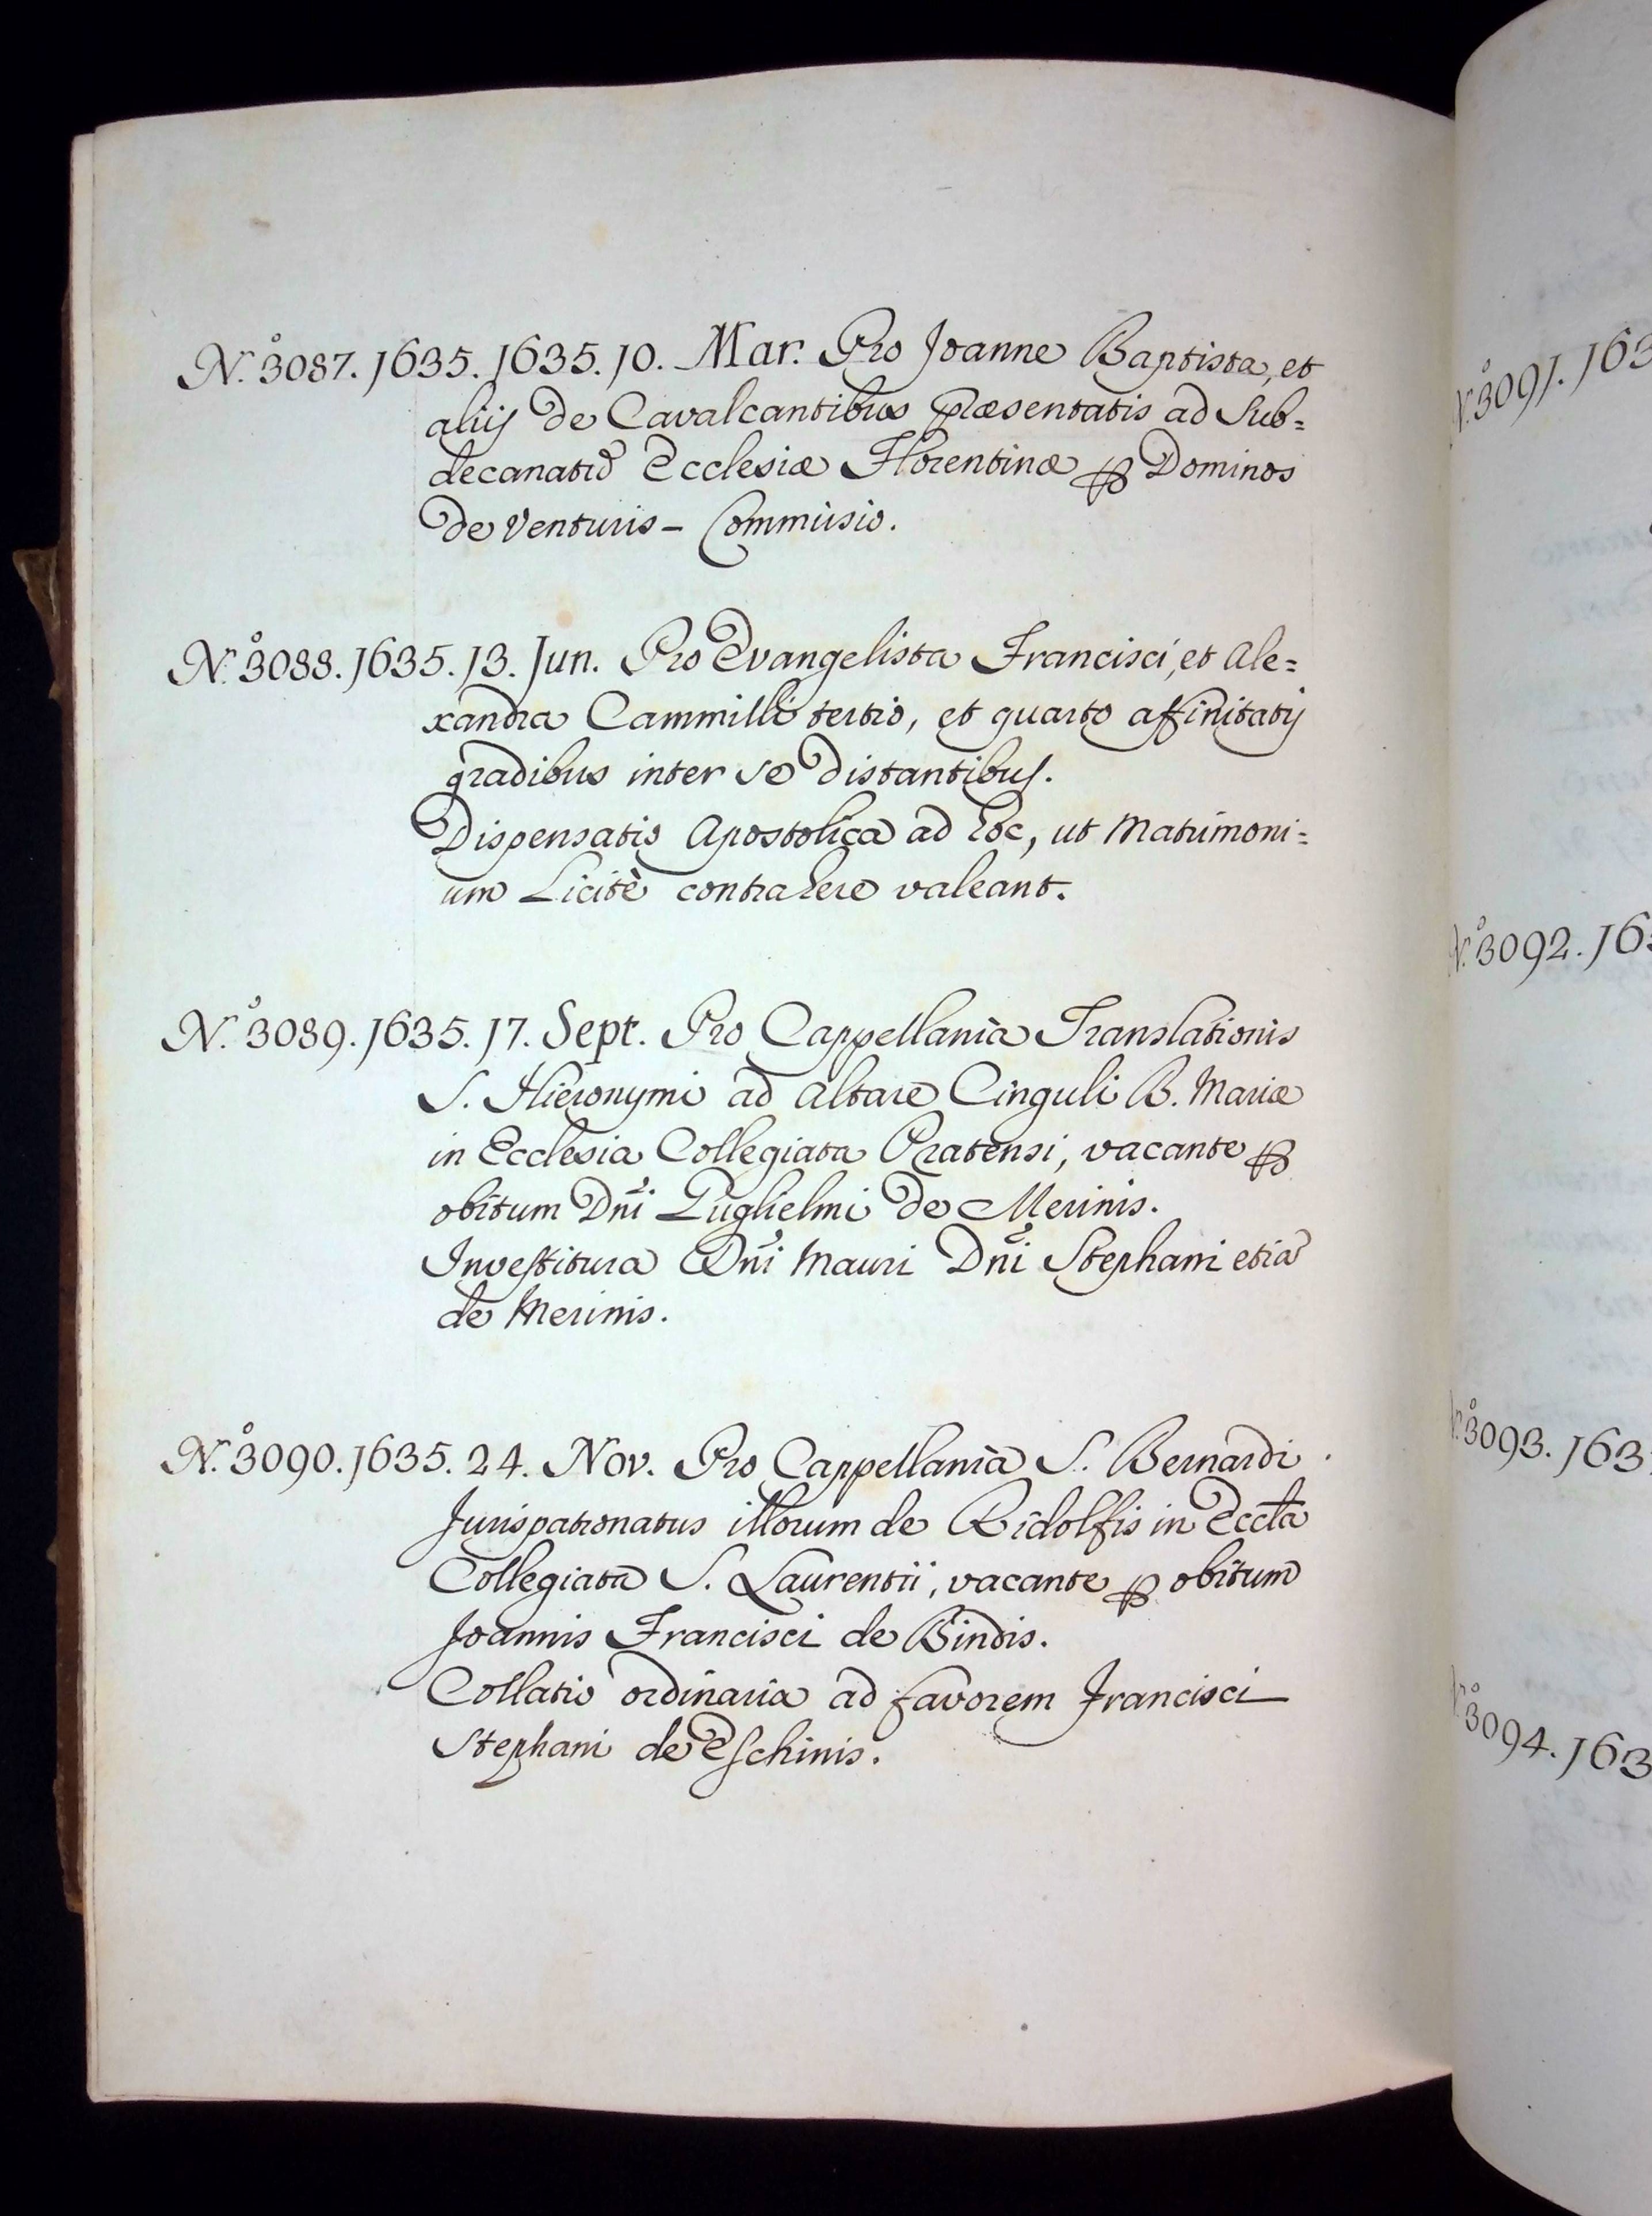 N.º 3087. 1635. 1635. 10. Mar. Pro Joanne Baptista, et
alijs de Cavalcantibus præsentatis ad Sub=
decanatũ Ecclesiæ Florentinæ ꝑ Dominos
de Venturis - Commissio.
N.º 3088. 1635. 13. Jun. Pro Evangelista Francisci, et Ale=
xandra Cammilli tertio, et quarto affinitatis
gradibus inter se distantibus.
Dispensatio Apostolica ad hoc, ut Matrimoni=
um Licitè contrahere valeant.
N.º 3089. 1635. 17. Sept. Pro Cappellania Translationis
S. Hieronymi ad Altare Cinguli B. Mariæ
in Ecclesia Collegiata Pratensi, vacante ꝑ
obitum Dñi Guglielmi de Merinis.
Investitura Dñi Mauri Dñi Stephani etiã
de Merinis.
N.º 3090. 1635. 24. Nov. Pro Cappellania S. Bernardi
Jurispatronatus illorum de Ridolfis in Eccl̃a
Collegiata S. Laurentii, vacante ꝑ obitum
Joannis Francisci de Bindis.
Collatio ordinaria ad favorem Francisci
Stephani de Eschinis.
N.º 3091. 163
N.º 3092. 163
N.º 3093. 163
N.º 3094. 163